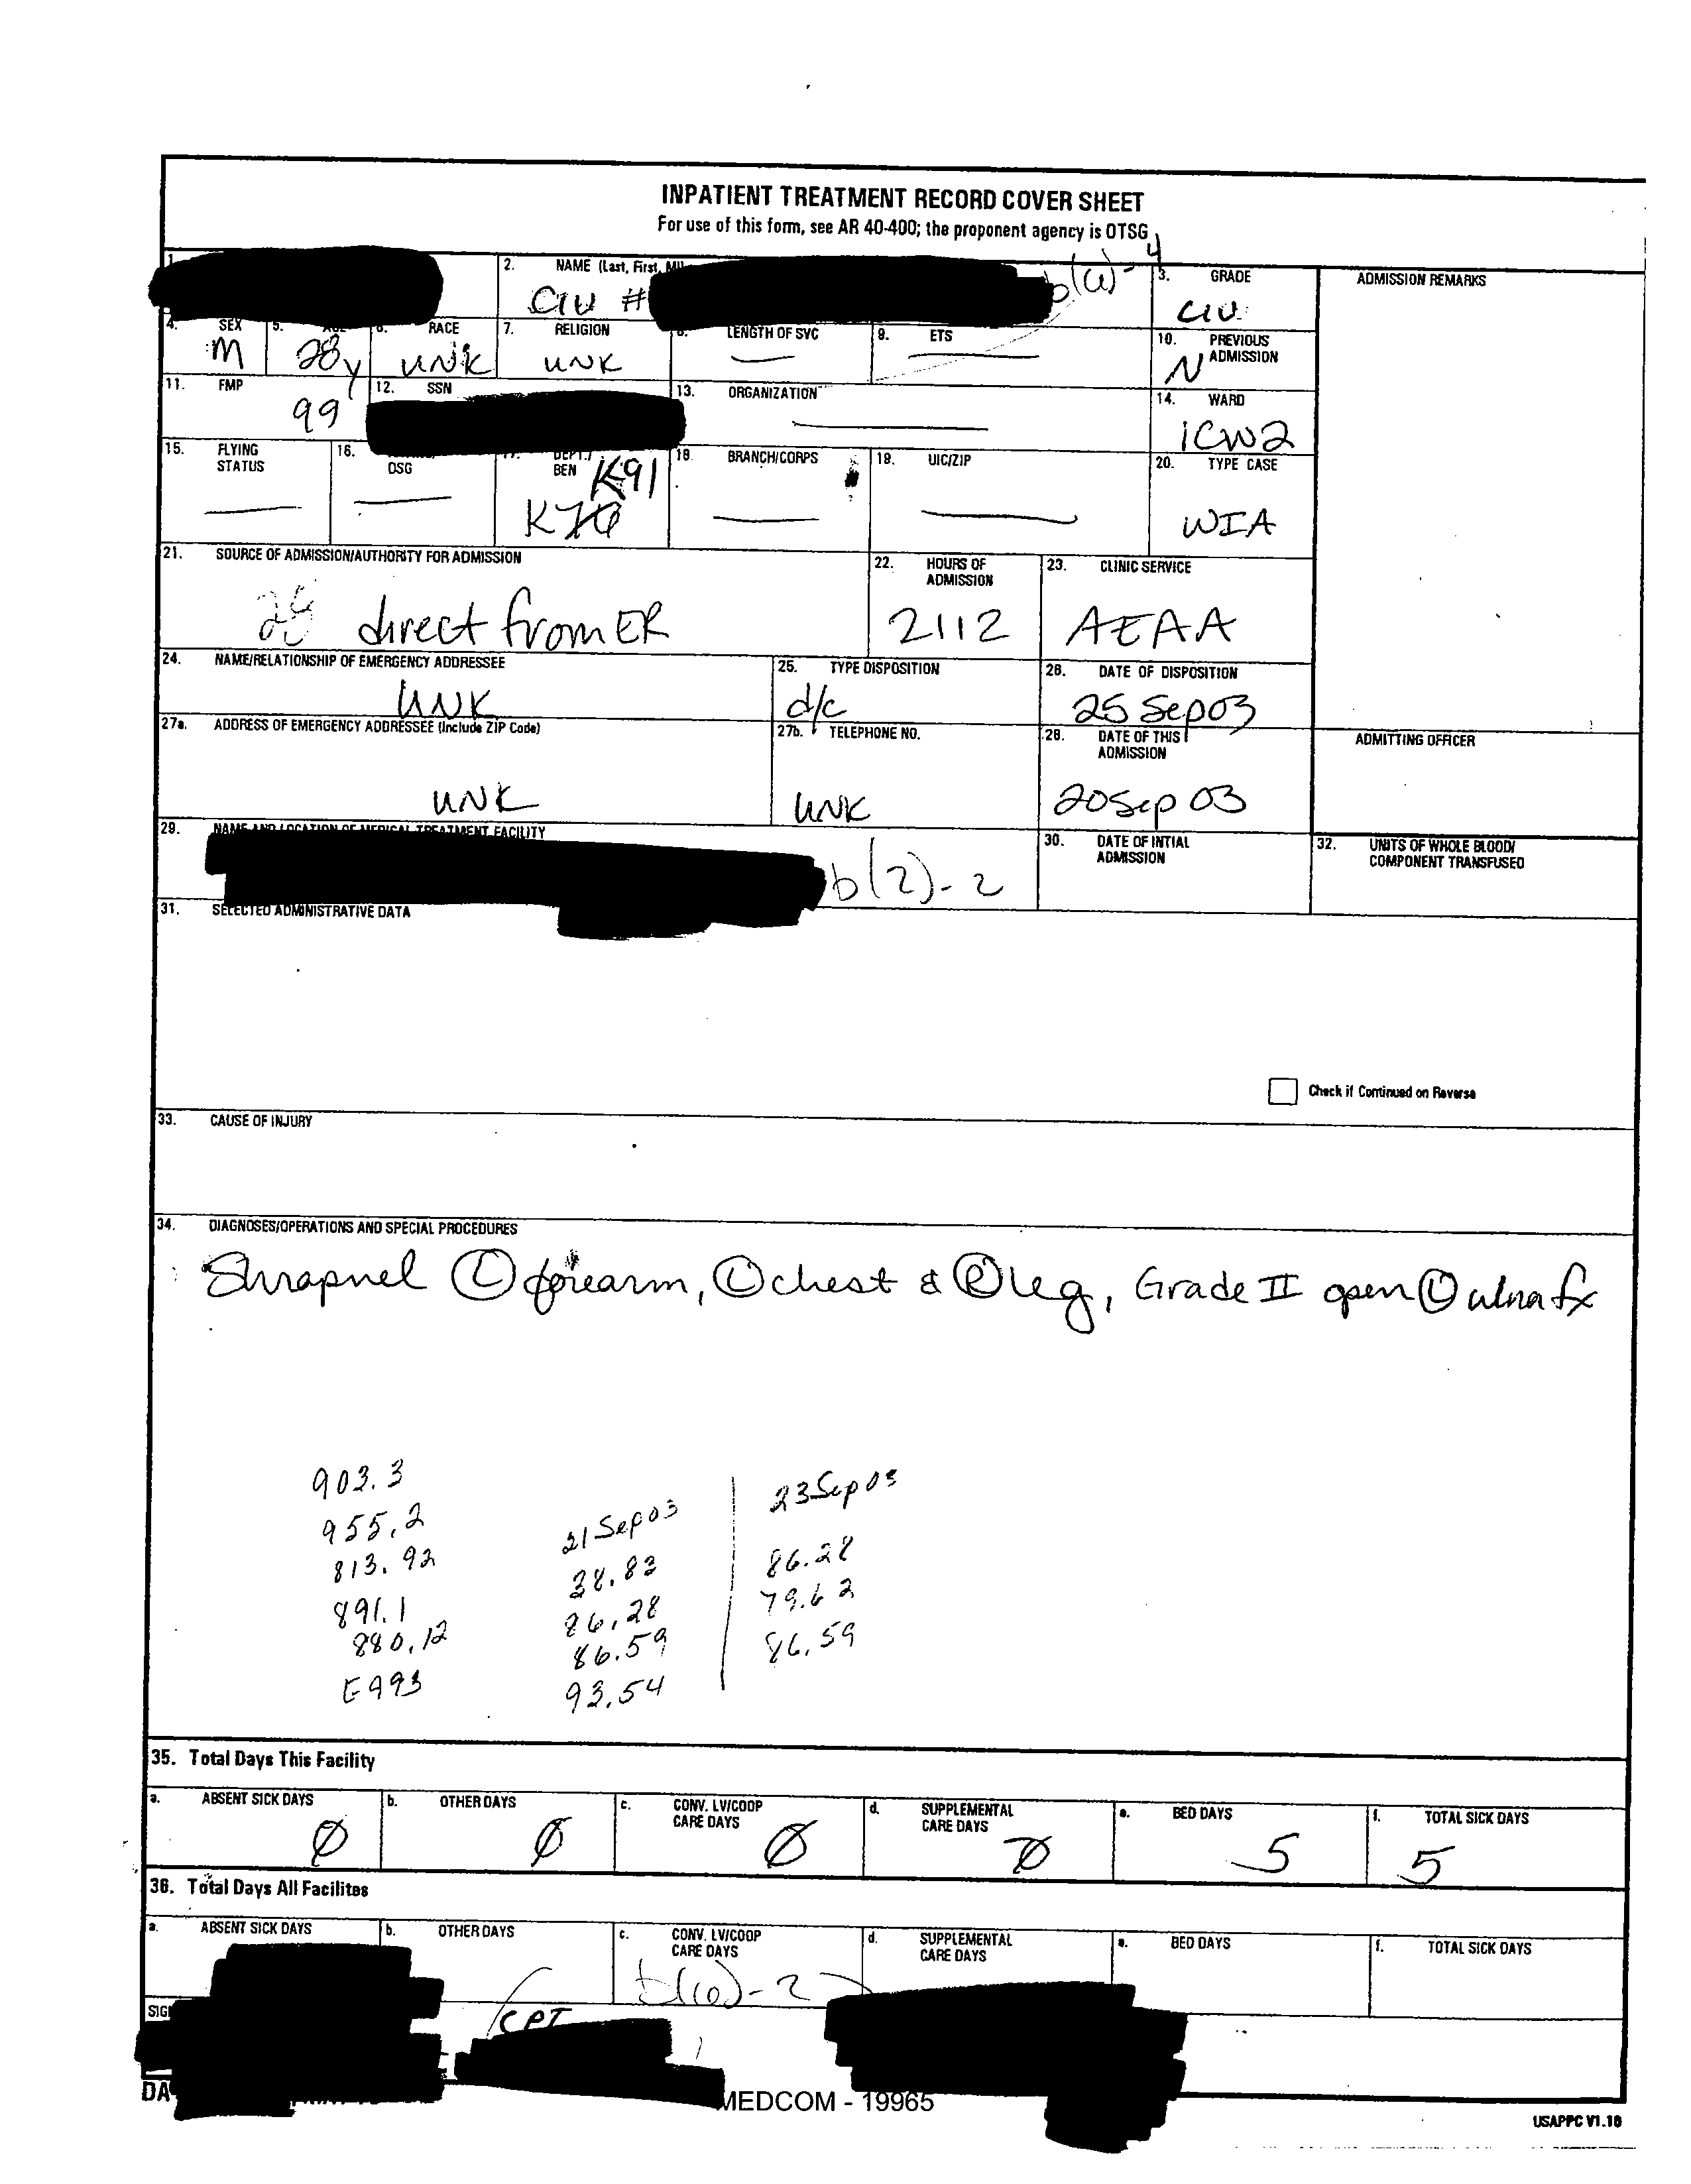 INPATIENT TREATMENT RECORD COVER SHEET
For use of this form, see AR 40-400; the proponent agency is OTSG
1.
2. NAME (Last, First, MI)
CIV #
b(6)-4
3. GRADE
CIV
ADMISSION REMARKS
4. SEX
M
5. AGE
28y
6. RACE
UNK
7. RELIGION
UNK
8. LENGTH OF SVC
—
9. ETS
—
10. PREVIOUS ADMISSION
N
11. FMP
99
12. SSN
13. ORGANIZATION
—
14. WARD
ICW2
15. FLYING STATUS
—
16. DSG
—
17. DEPT./ BEN
K91
18. BRANCH/CORPS
—
19. UIC/ZIP
—
20. TYPE CASE
WIA
21. SOURCE OF ADMISSION/AUTHORITY FOR ADMISSION
direct from ER
22. HOURS OF ADMISSION
2112
23. CLINIC SERVICE
AEAA
24. NAME/RELATIONSHIP OF EMERGENCY ADDRESSEE
UNK
25. TYPE DISPOSITION
d/c
26. DATE OF DISPOSITION
25 Sep 03
27a. ADDRESS OF EMERGENCY ADDRESSEE (Include ZIP Code)
UNK
27b. TELEPHONE NO.
UNK
28. DATE OF THIS ADMISSION
20 Sep 03
ADMITTING OFFICER
29. NAME AND LOCATION OF MEDICAL TREATMENT FACILITY
b(2)-2
30. DATE OF INTIAL ADMISSION
32. UNITS OF WHOLE BLOOD/ COMPONENT TRANSFUSED
31. SELECTED ADMINISTRATIVE DATA
Check if Continued on Reverse
33. CAUSE OF INJURY
34. DIAGNOSES/OPERATIONS AND SPECIAL PROCEDURES
Shrapnel Ⓛ forearm, Ⓛ chest & Ⓡ leg, Grade II open Ⓛ ulna fx
903.3
955.2
813.92
891.1
880.12
E993
21 Sep 03
38.83
86.28
86.59
93.54
23 Sep 03
86.28
79.62
86.59
35. Total Days This Facility
a. ABSENT SICK DAYS
0
b. OTHER DAYS
0
c. CONV. LV/COOP CARE DAYS
0
d. SUPPLEMENTAL CARE DAYS
0
e. BED DAYS
5
f. TOTAL SICK DAYS
5
36. Total Days All Facilites
a. ABSENT SICK DAYS
b. OTHER DAYS
c. CONV. LV/COOP CARE DAYS
b(6)-2
d. SUPPLEMENTAL CARE DAYS
e. BED DAYS
f. TOTAL SICK DAYS
SIG
CPT
DA
MEDCOM - 19965
USAPPC V1.10